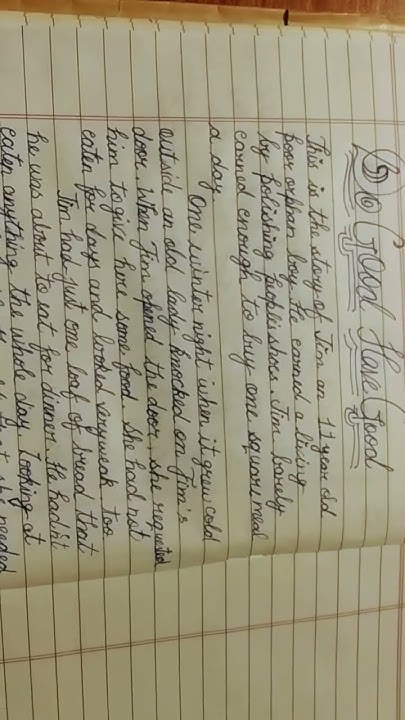 Do Good Have Good
This is the story of Jim an 11 year old
poor orphan boy. He earned a living
by polishing people's shoes. Jim barely
earned enough to buy one square meal
a day.
One winter night when it grew cold
outside an old lady knocked on Jim's
door. When Jim opened the door, she requested
him to give here some food she had not
eaten for days and looked very weak too
Jim had just one loaf of bread that
he was about to eat for dinner. He hadn't
eaten anything the whole day. Looking at
that she needed